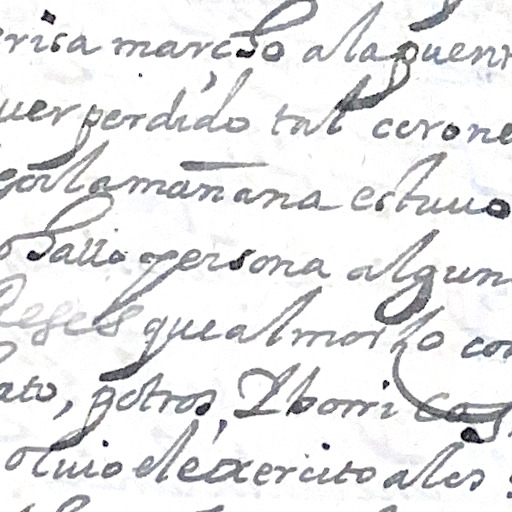 erisa marcho a la guerr
uer perdido tal corone
por la mañana estuuo
o hallo persona algun
Reses que al mojo con
ato, potros, Y borricos,
oluio el exercito a les